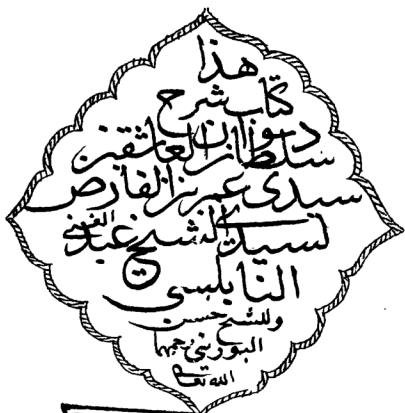 هذا
كتاب شرح
ديوان
سلطان العاشقين
سيدى عمر بن الفارض
لسيدى الشيخ عبد الغنى
النابلسى
وللشيخ حسن
البورينى رحمهما
الله تعالى